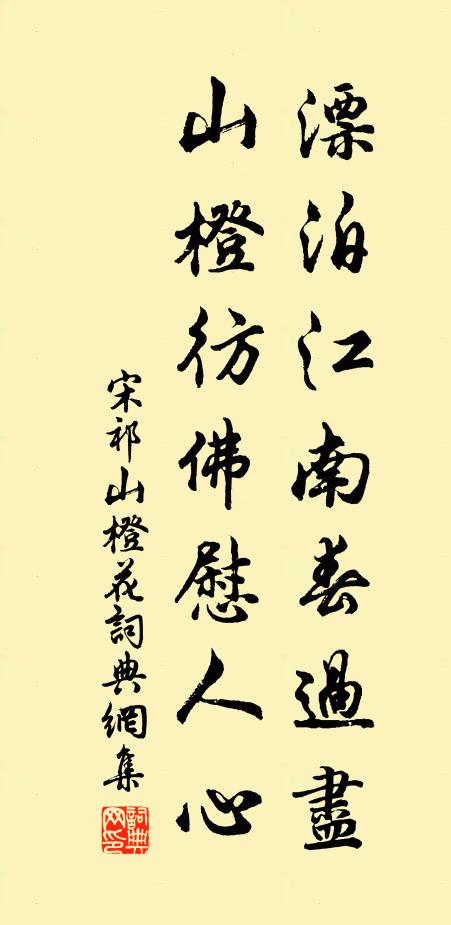 漂泊江南春過盡
山橙彷佛慰人心
宋祁山橙花詞典網集
詞典網印